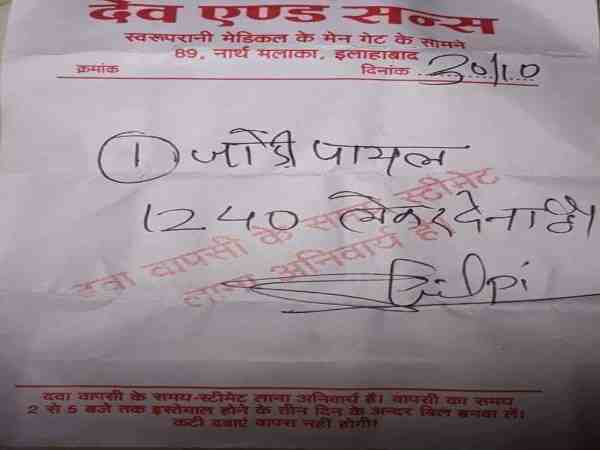 देव एण्ड सन्स
स्वरूपरानी मेडिकल के मेन गेट के सामने
89, नार्थ मलाका, इलाहाबाद
क्रमांक दिनांक 30/10
1 जोडी पायल
1240 लेकर देना है।
दवा वापसी के समय स्टीमेट
लाना अनिवार्य है।
Shilpi
दवा वापसी के समय-स्टीमेट लाना अनिवार्य है। वापसी का समय
2 से 5 बजे तक इस्तेमाल होने के तीन दिन के अन्दर बिल बनवा लें।
कटी दवाएं वापस नहीं होगी।